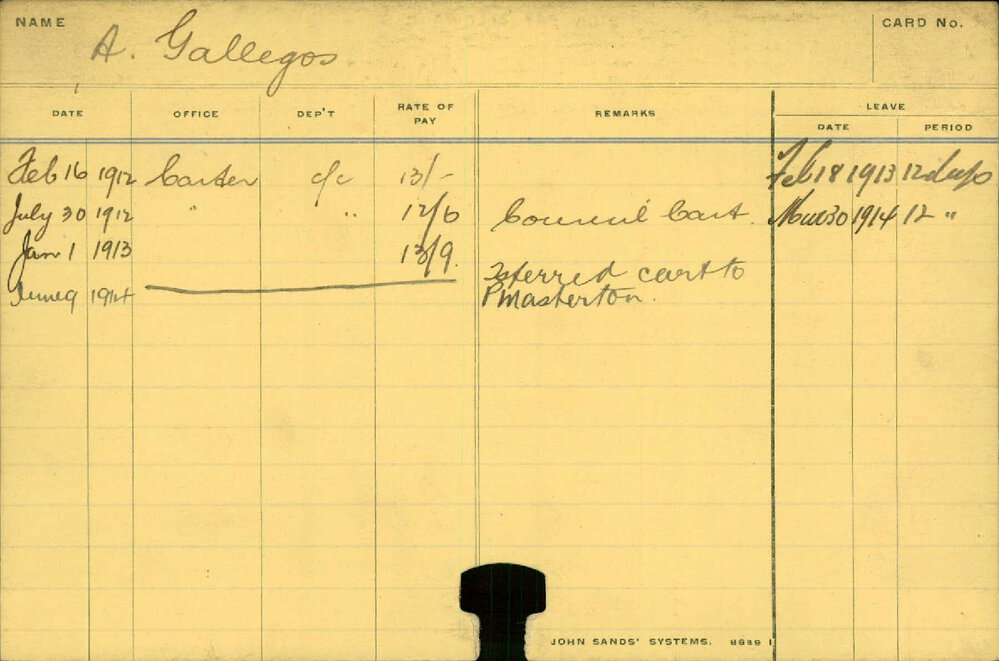 NAME A. Gallegos CARD No.
LEAVE
DATE OFFICE DEP'T RATE OF PAY REMARKS DATE PERIOD
Feb 16 1912 Carter c/c 13/- Feb 18 1913 12 days
July 30 1912 " " 12/6 Council Cart. Mar 30 1914 12 "
Jan 1 1913 13/9.
June 9 1914 Tsferred cart to
P Masterton.
JOHN SANDS' SYSTEMS.